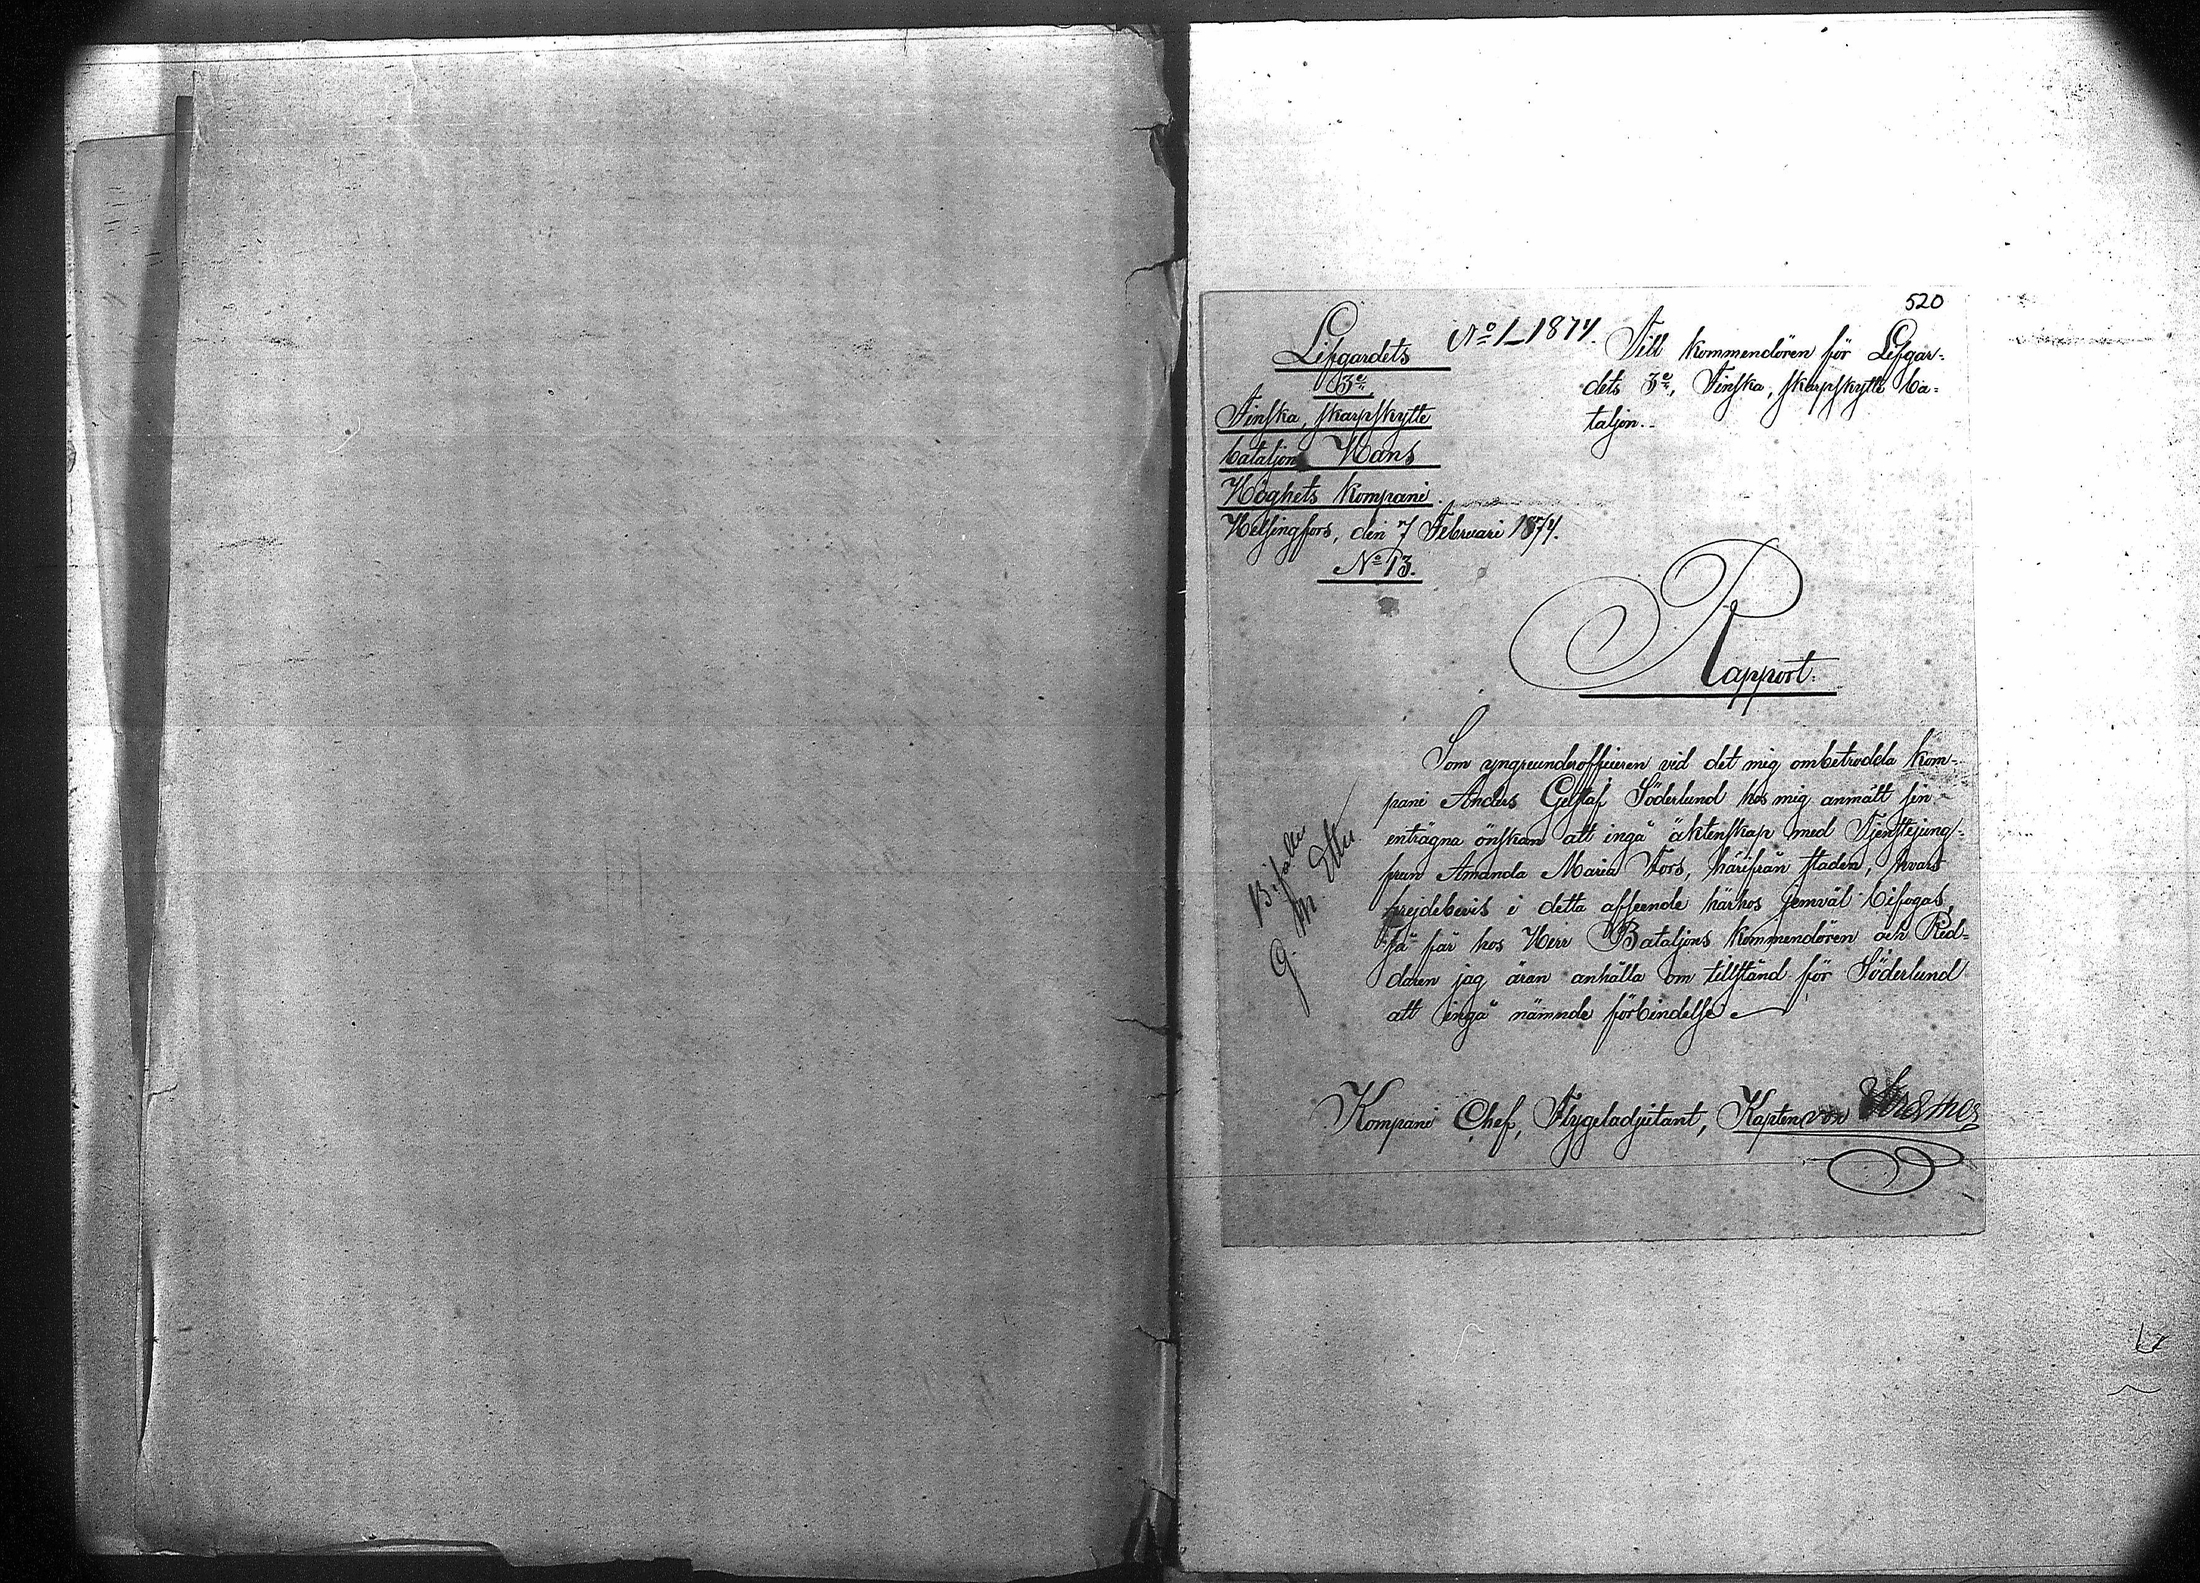 520
No 1_1874.
Lifgardets
3e,
Finska, skarpskytte
bataljon Hans
Höghets kompani.
Helsingfors, den 7 Februari 1874.
No 13.
Till kommendören för Lifgar-
dets 3e, Finska, skarpskytte ba-
taljon.
Rapport.
Som yngreunderofficieren vid det mig ombetrodda kom-
pani Anders Gustaf Söderlund hos mig anmält sin
enträgna önskan att ingå äktenskap med Tjenstejung-
frun Amanda Maria Fors, härifrån staden, hvars
frejdebevis i detta afseende härhos jemväl bifogas,
så får hos Herr Bataljons kommendören och Rid-
daren jag äran anhålla om tillstånd för Söderlund
att ingå nämnde förbindelse.
Bifalles
G. M.
Kompani Chef, Flygeladjutant, Kapten von